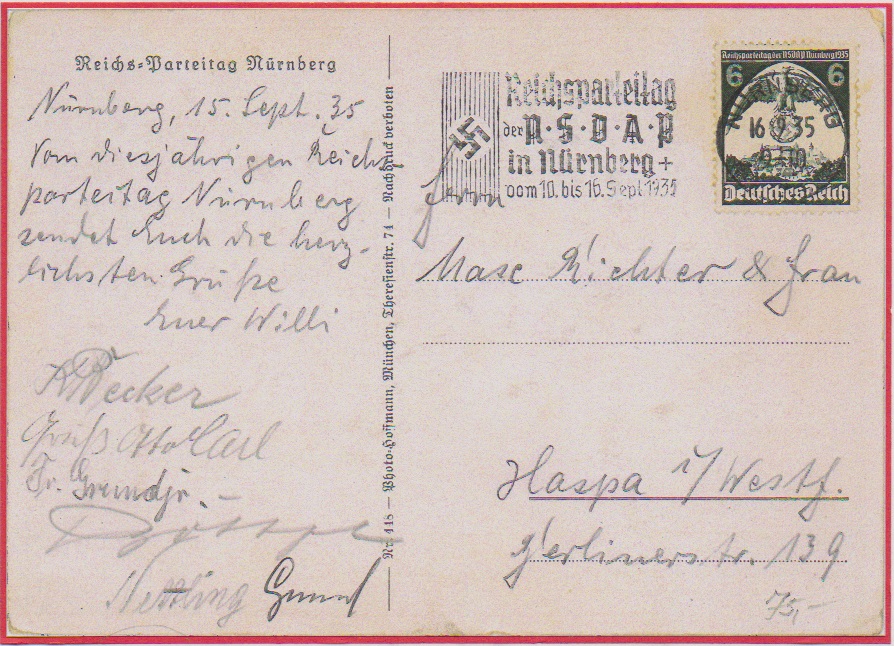 Reichs-Parteitag Nürnberg
Nürnberg, 15. Sept. 35
Vom diesjährigen Reichs
parteitag Nürnberg
sendet Euch die herz-
lichsten Grüße
Euer Willi
Becker
Gruß Otto Carl
Fr.
Nr. 118 — Photo-Hoffmann, München, Theresienstr. 74 — Nachdruck verboten
Reichsparteitag
der N·S·D·A·P
in Nürnberg +
vom 10. bis 16. Sept 1935
Reichsparteitag der NSDAP Nürnberg 1935
6 6
NÜRNBERG
16.9.35
Deutsches Reich
Herrn
Max Richter & Frau
Haspa i/Westf.
Berlinerstr. 139
75,-